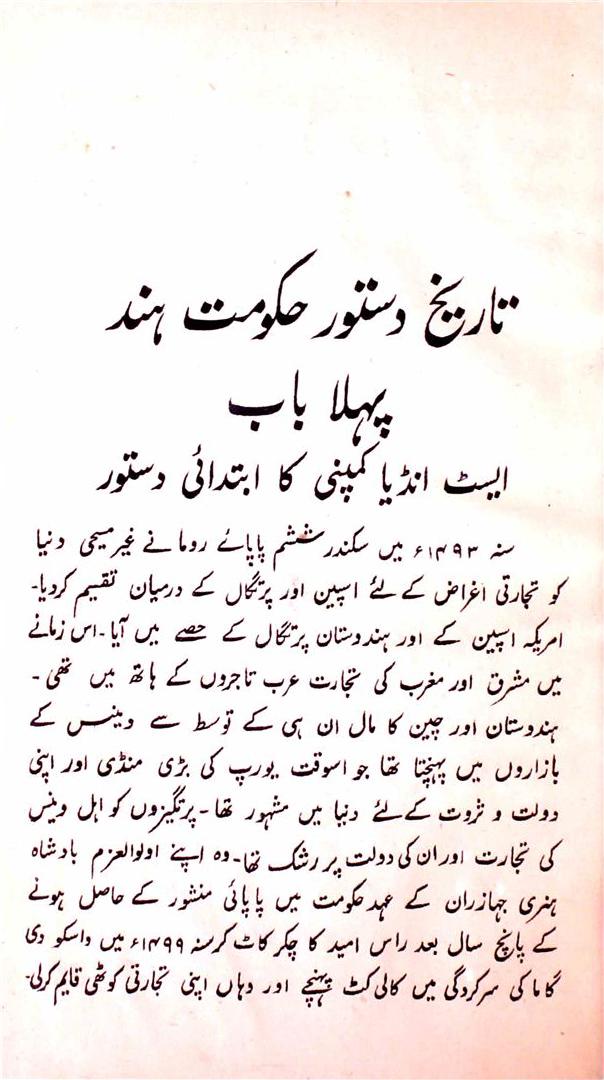 تاریخ دستور حکومت ہند
پہلا باب
ایسٹ انڈیا کمپنی کا ابتدائی دستور
سنہ ۱۴۹۳ء میں سکندر ششم پاپائے روما نے غیر مسیحی دنیا
کو تجارتی اغراض کے لئے اسپین اور پرتگال کے درمیان تقسیم کردیا۔
امریکہ اسپین کے اور ہندوستان پرتگال کے حصے میں آیا۔ اس زمانے
میں مشرق اور مغرب کی تجارت عرب تاجروں کے ہاتھ میں تھی۔
ہندوستان اور چین کا مال ان ہی کے توسط سے وینس کے
بازاروں میں پہنچتا تھا جو اسوقت یورپ کی بڑی منڈی اور اپنی
دولت و ثروت کے لئے دنیا میں مشہور تھا۔ پرتگیزوں کو اہل وینس
کی تجارت اور ان کی دولت پر رشک تھا۔ وہ اپنے اولوالعزم بادشاہ
ہنری جہازران کے عہد حکومت میں پاپائی منشور کے حاصل ہونے
کے پانچ سال بعد راس امید کا چکر کاٹ کر سنہ ۱۴۹۹ء میں واسکو دی
گاما کی سرکردگی میں کالی کٹ پہنچے اور وہاں اپنی تجارتی کوٹھی قایم کرلی۔